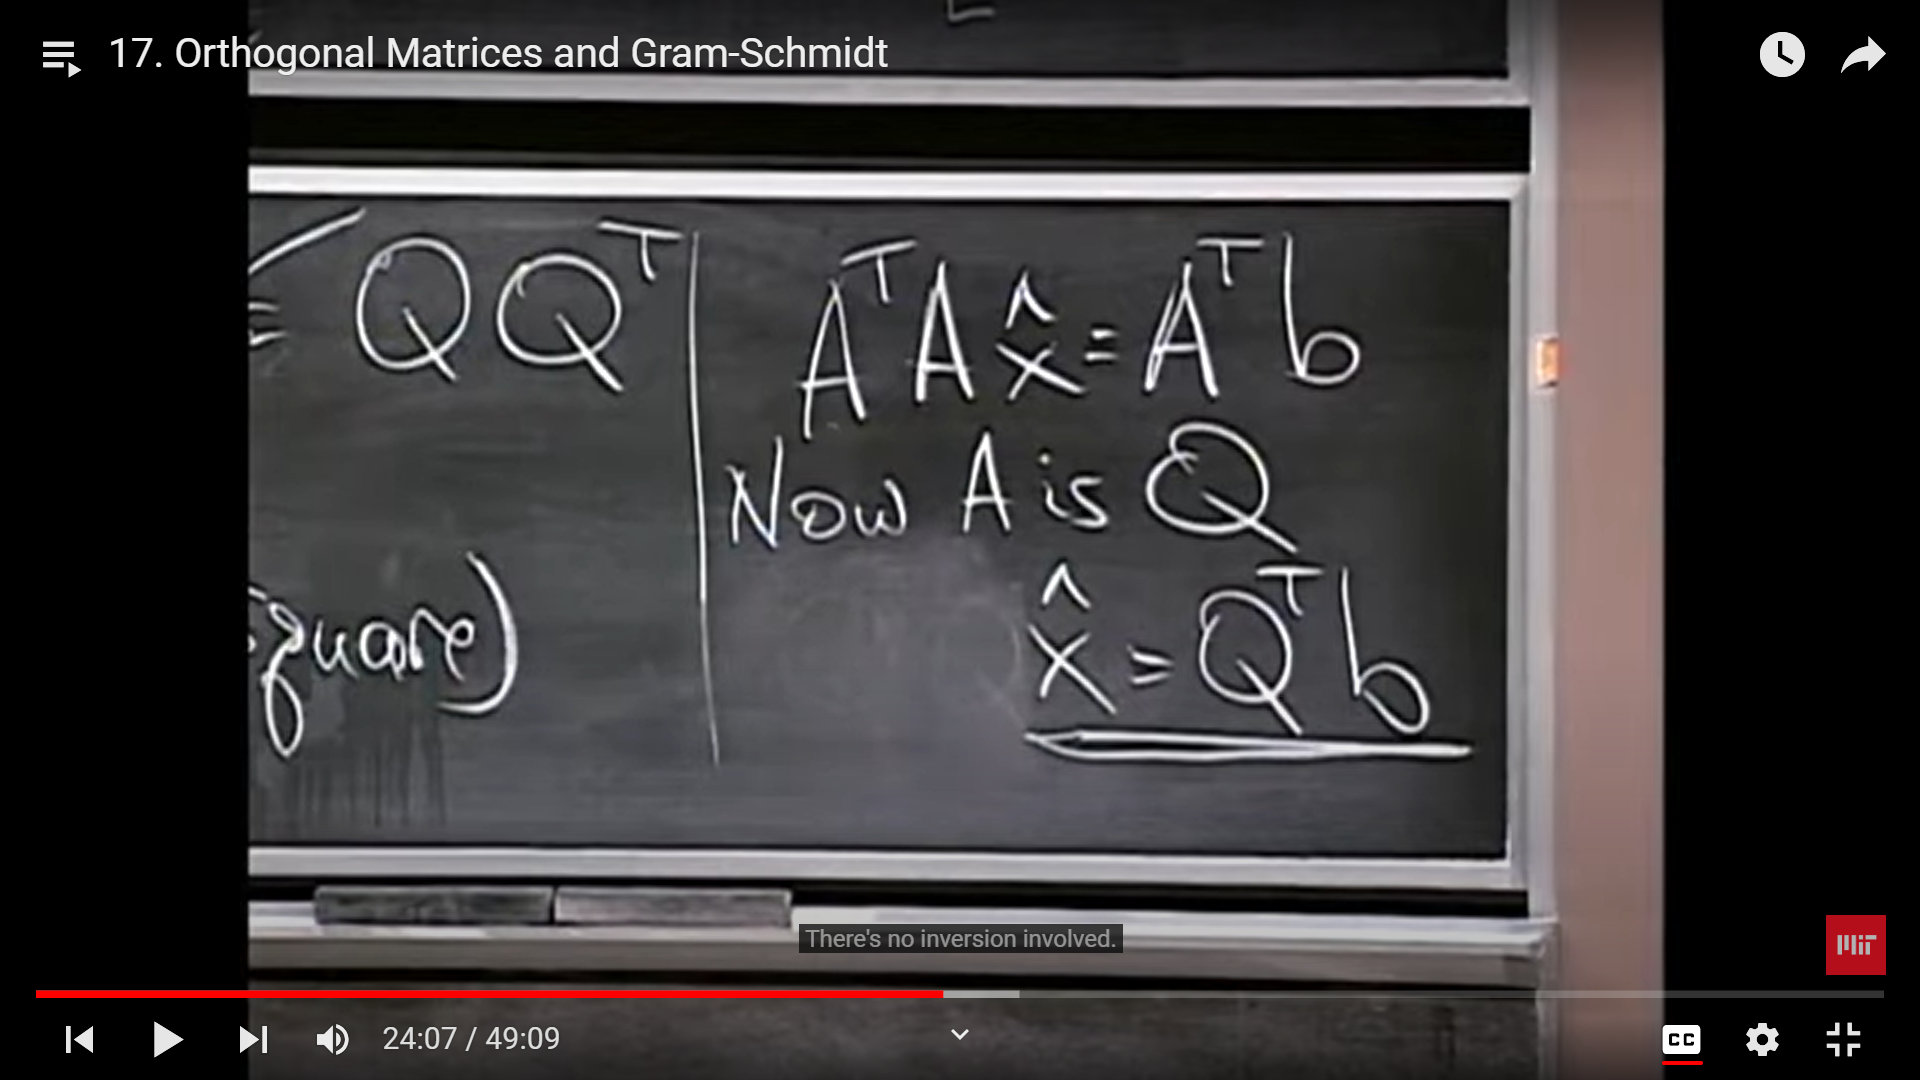 17. Orthogonal Matrices and Gram-Schmidt
= QQᵀ
AᵀA x̂ = Aᵀb
Now A is Q
x̂ = Qᵀb
square)
There's no inversion involved.
MIT
24:07 / 49:09
CC